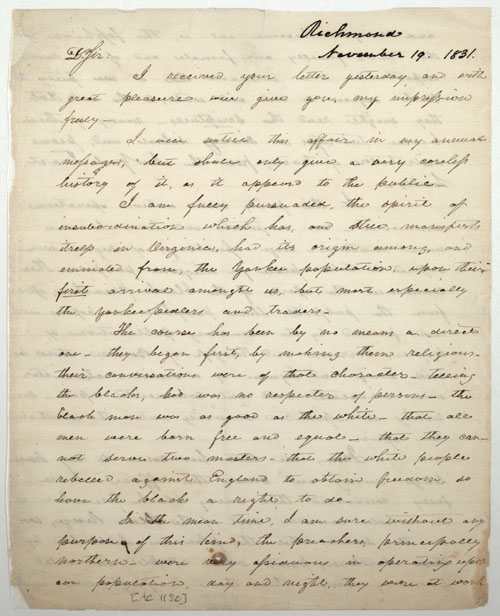 Richmond
November 19. 1831.
Dr Sir:
I received your letter yesterday and with
great pleasure will give you, my impressions
freely—
I will notice this affair in my annual
message, but shall only give a very careless
history of it, as it appeared to the public—
I am fully persuaded, the spirit of
insubordination which has, and still manifests
itself in Virginia, had its origin among, and
eminated from, the Yankee population, upon their
first arrival amongst us, but most especially
the Yankee pedlers and traders—
The course has been by no means a direct
one— they began first, by making them religious—
their conversations were of that character— telling
the blacks, God was no respecter of persons— the
black man was as good as the white— that all
men were born free and equal— that they can-
not serve two masters— that the white people
rebelled against England to obtain freedom, so
have the blacks a right to do—
In the mean time, I am sure without any
purpose of this kind, the preachers, principally
northern— were very assiduous in operating upon
our population, day and night, they were at work
[AC 113c]